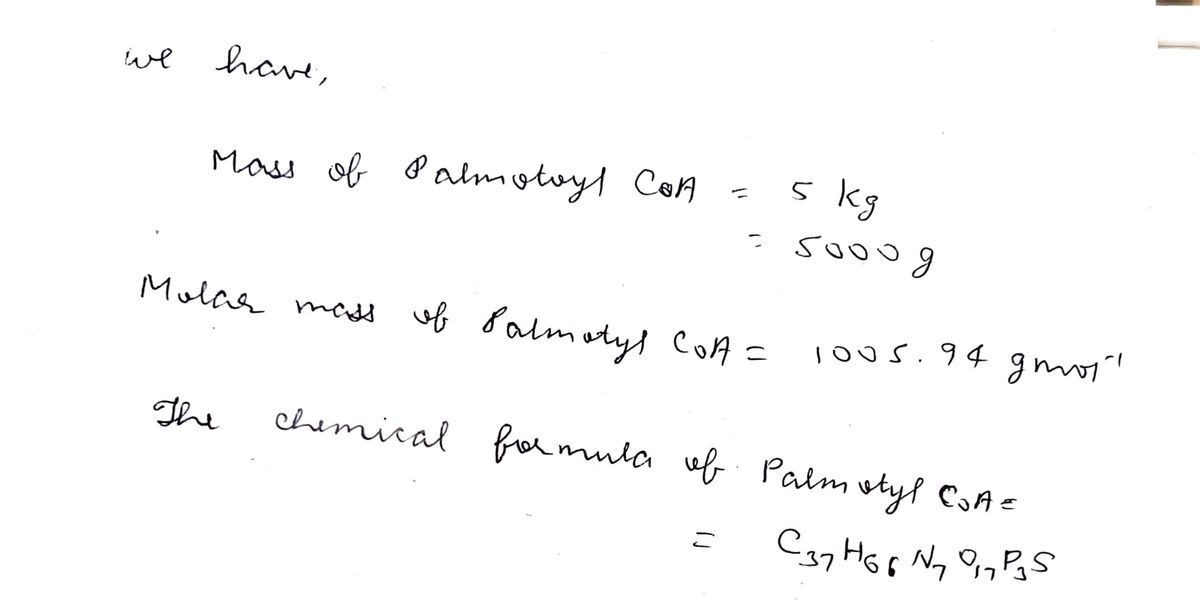 we have,
Mass of Palmotoyl CoA = 5 kg
= 5000 g
Molar mass of Palmotyl CoA = 1005.94 gmol⁻¹
The chemical formula of Palmotyl CoA =
= C₃₇H₆₆N₇O₁₇P₃S